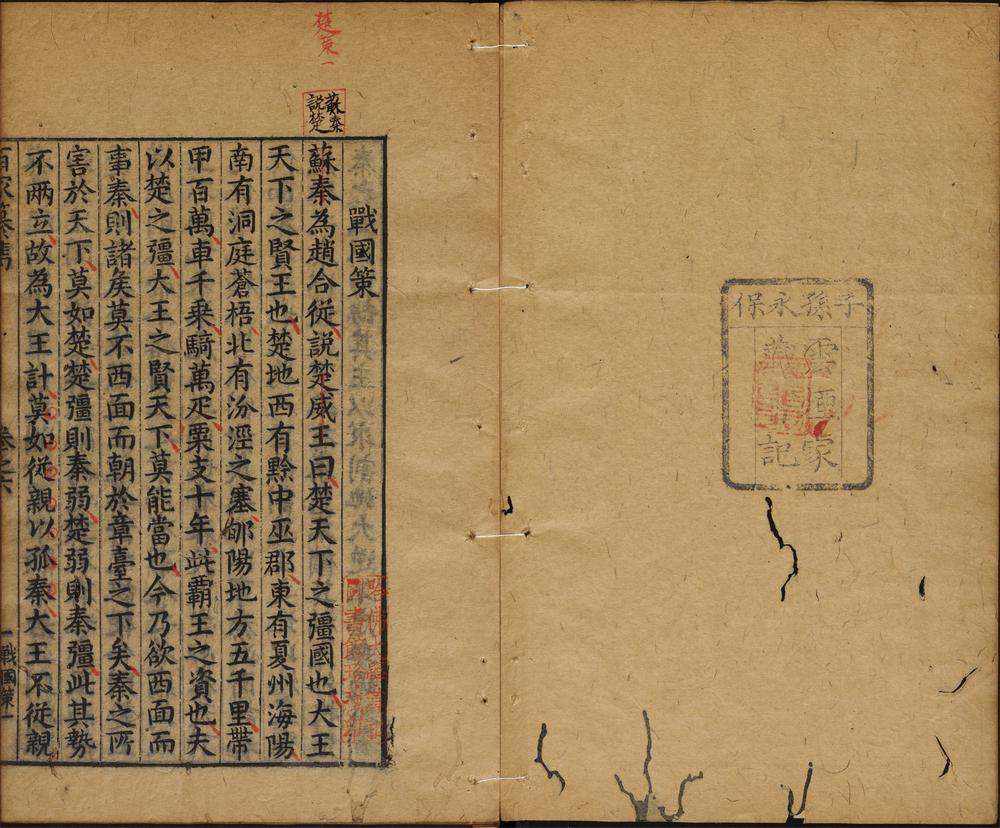 子孫永保
雲煙家
藏書記
楚策一
蘇秦
說楚
戰國策
蘇秦為趙合從說楚威王曰楚天下之彊國也大王
天下之賢王也楚地西有黔中巫郡東有夏州海陽
南有洞庭蒼梧北有汾涇之塞郇陽地方五千里帶
甲百萬車千乘騎萬疋粟支十年此霸王之資也夫
以楚之彊大王之賢天下莫能當也今乃欲西面而
事秦則諸侯莫不西面而朝於章臺之下矣秦之所
害於天下莫如楚楚彊則秦弱楚弱則秦彊此其勢
不兩立故為大王計莫如從親以孤秦大王不從親
戰國策一